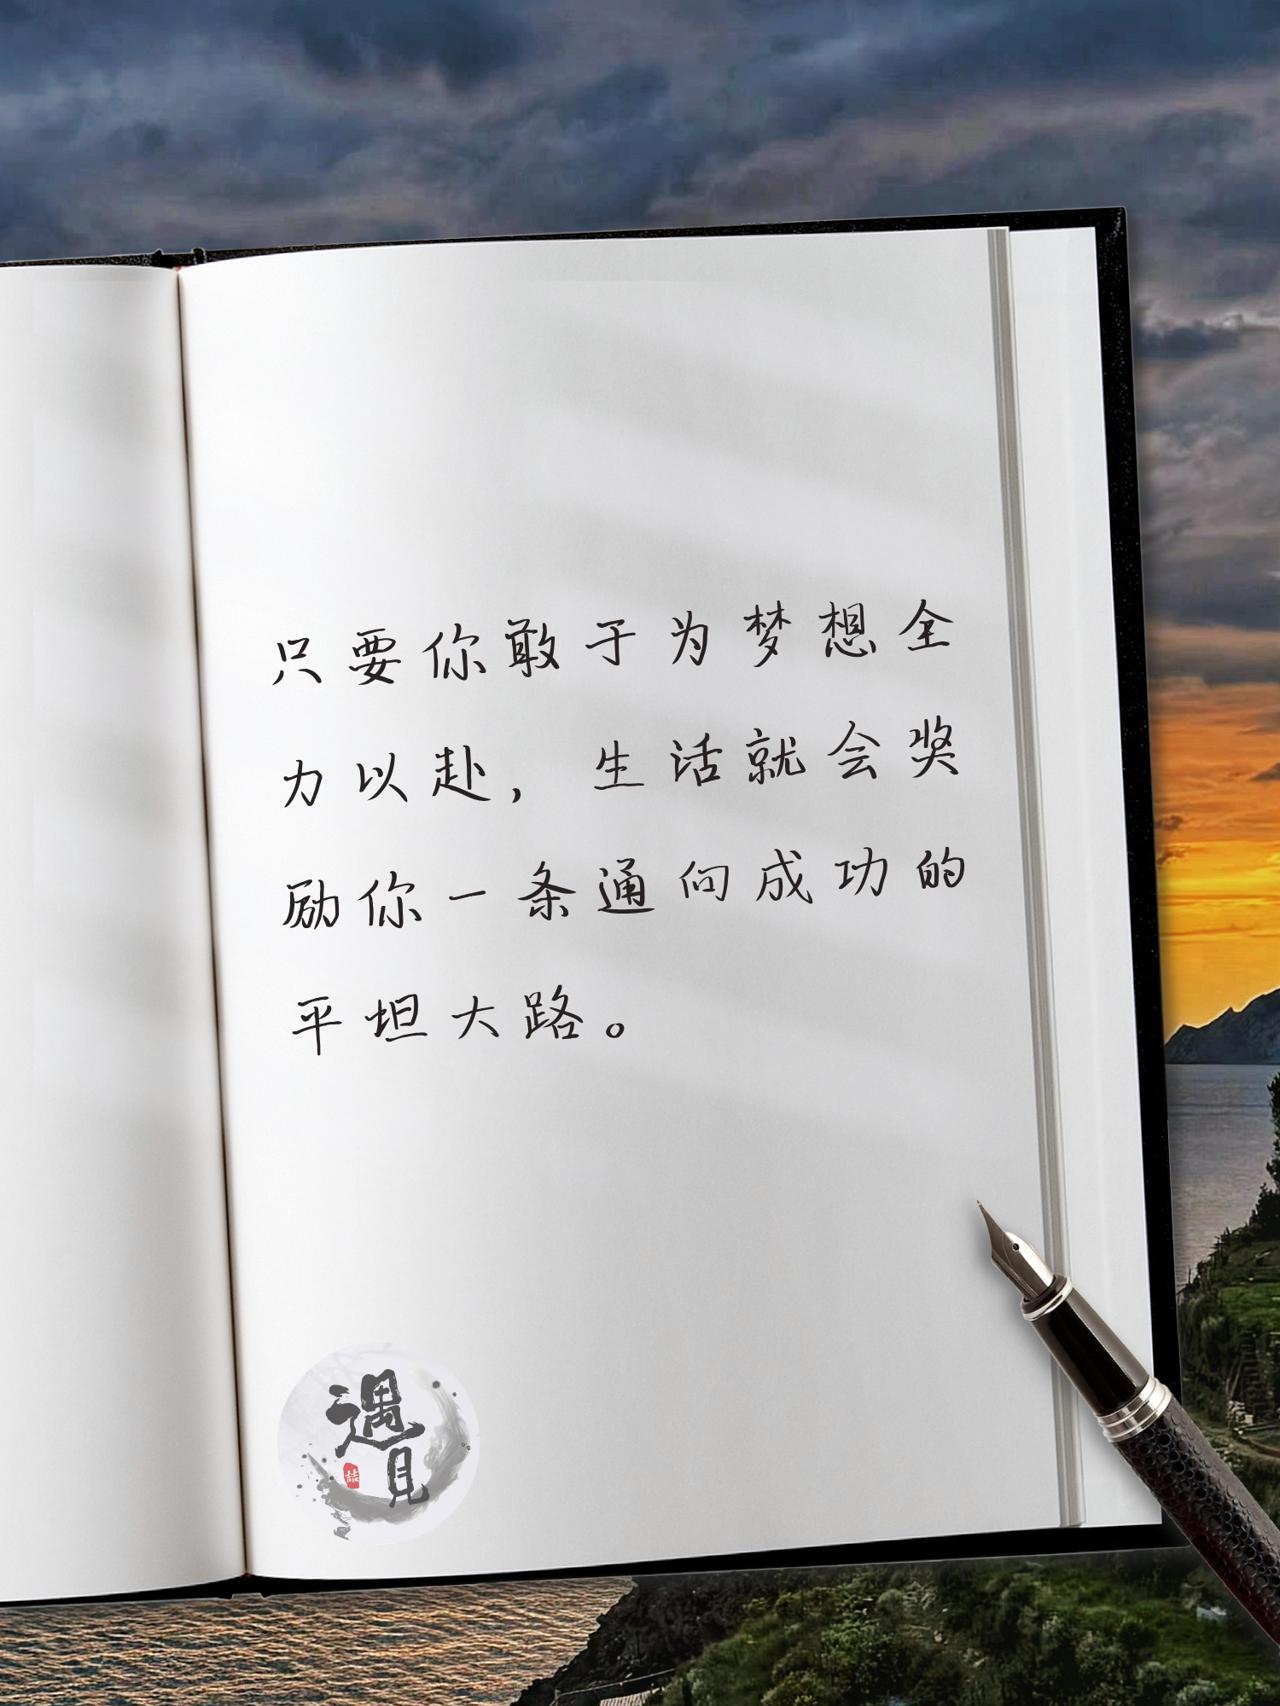 只要你敢于为梦想全
力以赴，生活就会奖
励你一条通向成功的
平坦大路。
遇
見
喆